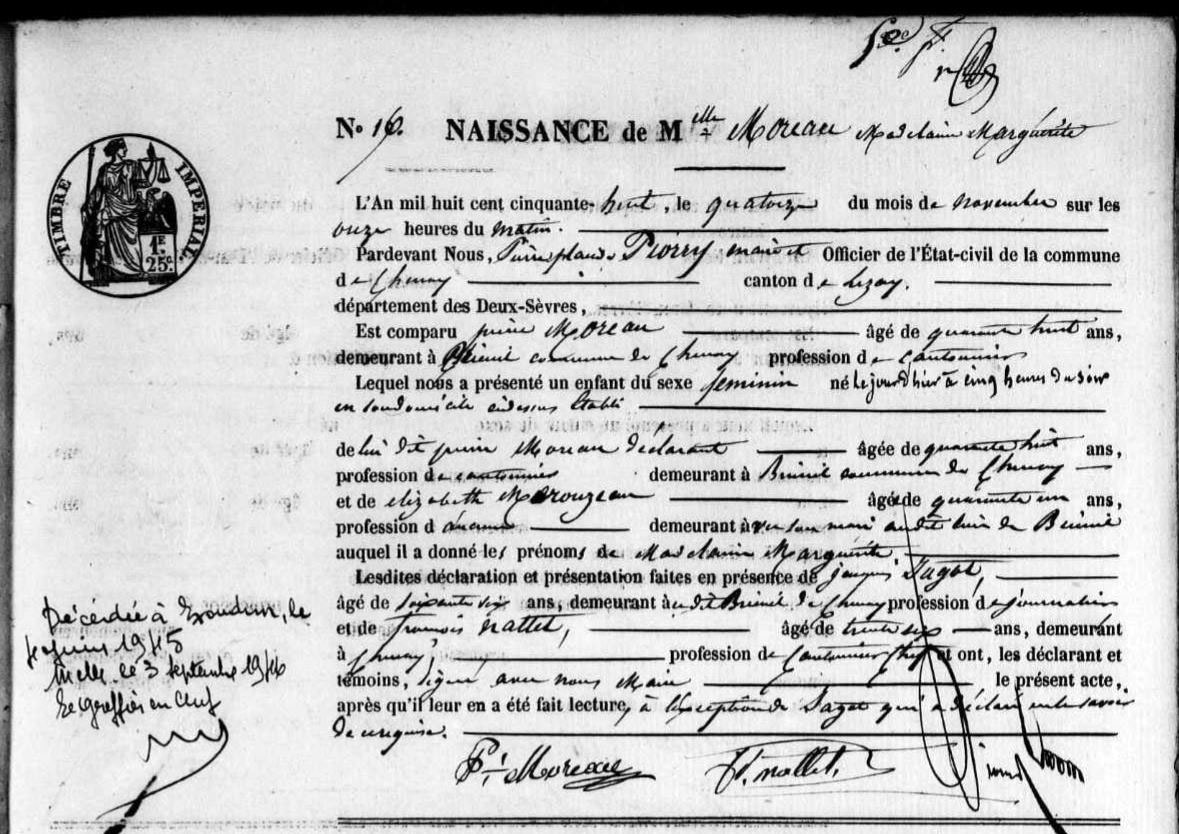 No 16. NAISSANCE de M elle Moreau Madelaine Marguerite
TIMBRE IMPÉRIAL
1F 25c.
L'An mil huit cent cinquante-huit, le quatorze du mois de novembre sur les
onze heures du matin.
Pardevant Nous, Piorry maire et Officier de l'État-civil de la commune
de Chenay canton de Lezay.
département des Deux-Sèvres,
Est comparu pierre Moreau âgé de quarante huit ans,
demeurant à Brieuil commune de Chenay profession de Cantonnier
Lequel nous a présenté un enfant du sexe feminin né le jour d'hier à cinq heures du soir
en son domicile ci dessus établi
de lui dit pierre Moreau déclarant âgée de quarante huit ans,
profession de cantonnier demeurant à Brieuil commune de Chenay
et de elizabeth âgée de quarante un ans,
profession d'aucune demeurant avec son mari audit lieu de Brieuil
auquel il a donné les prénoms de Madelaine Marguerite
Lesdites déclaration et présentation faites en présence de jacques Sagot,
âgé de soixante six ans, demeurant audit Brieuil de Chenay profession de journalier
et de francois nallet, âgé de trente six ans, demeurant
à Chenay, profession de Cantonnier Chef et ont, les déclarant et
témoins, signé avec nous Maire le présent acte,
après qu'il leur en a été fait lecture, à l'exception de Sagot qui a déclaré ne le savoir
de ce requis.
Pre Moreau F. nallet.
Décédée à Exoudun, le
1945
Melle le 3 septembre 1946
Le Greffier en Chef